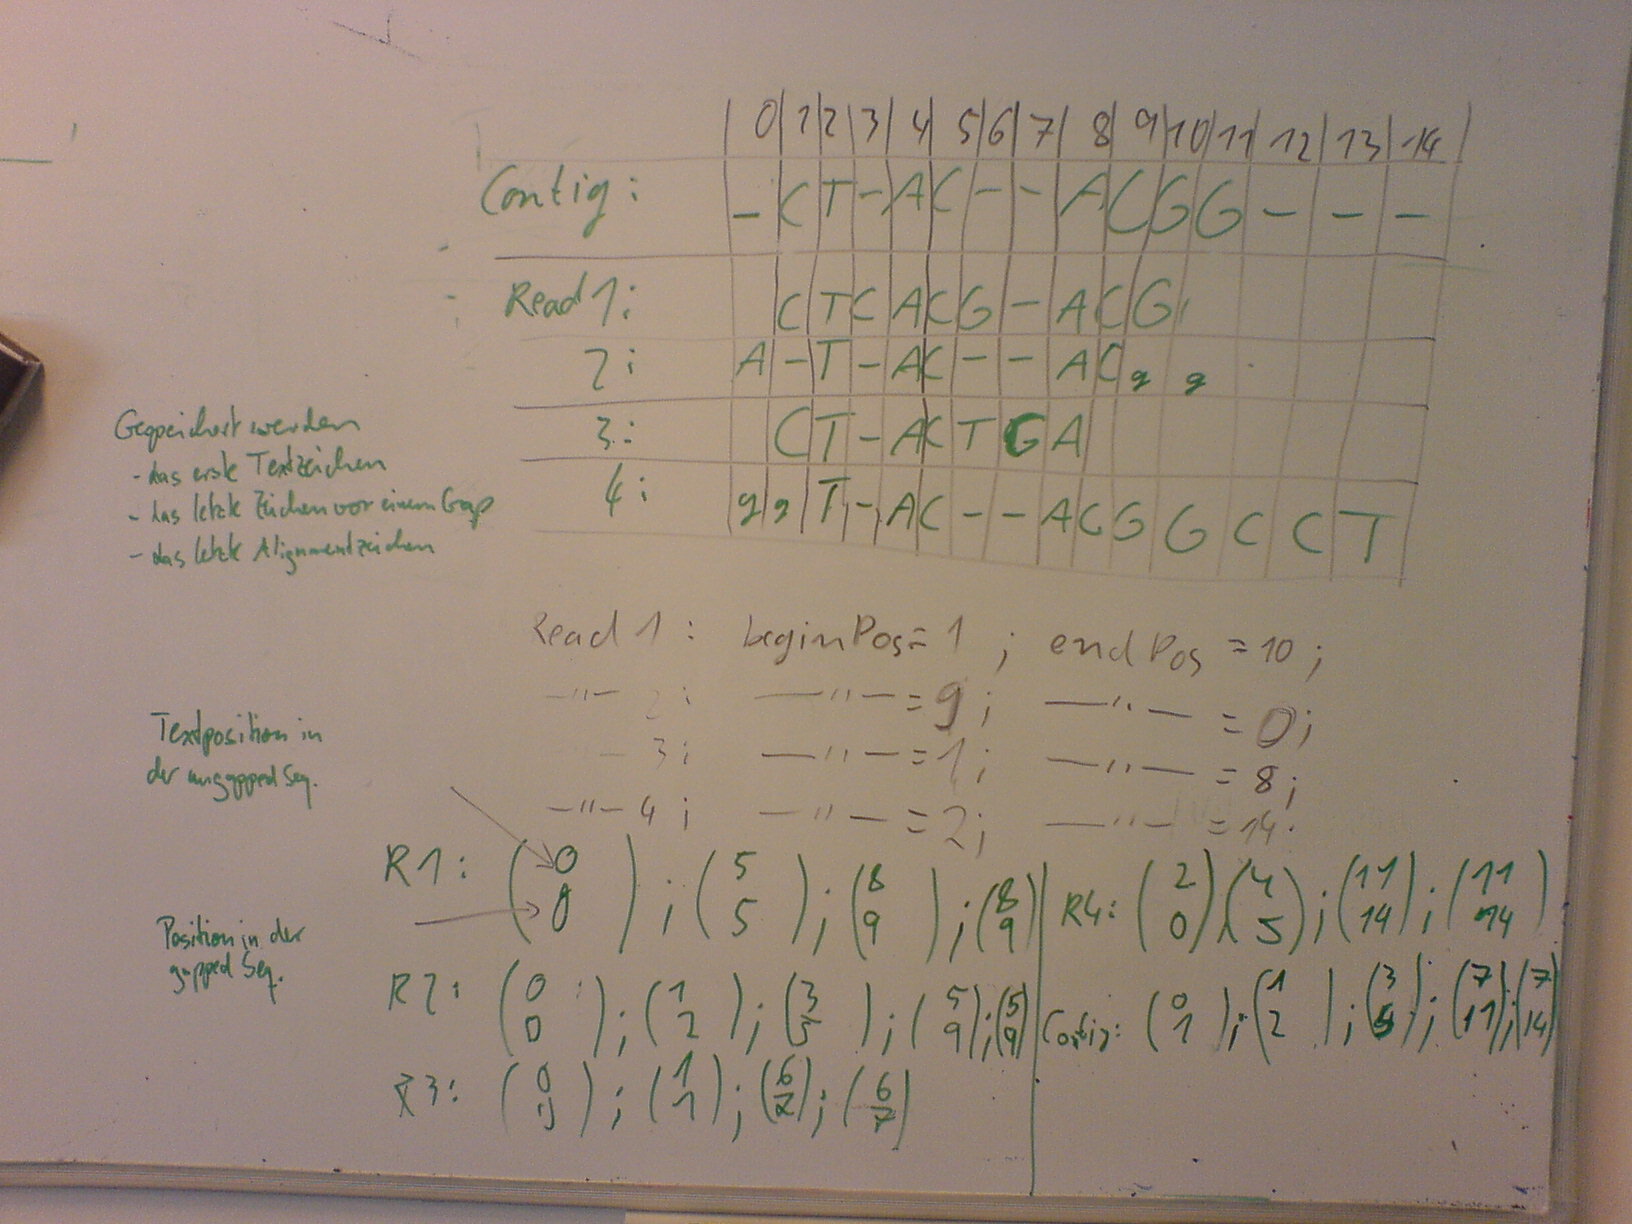 0 1 2 3 4 5 6 7 8 9 10 11 12 13 14
Contig: - C T - A C - - A C G G - - -
Read 1: C T C A C G - A C G
2: A - T - A C - - A C g g
3: C T - A C T G A
4: g g T - A C - - A C G G C C T
Gespeichert werden
- das erste Textzeichen
- das letzte Zeichen vor einem Gap
- das letzte Alignmentzeichen
Read 1: beginPos = 1; endPos = 10;
—"— 2: —"— = 9; —"— = 0;
— 3; —"— = 1; —"— = 8;
—"— 4; —"— = 2; —"— = 14;
Textposition in
der ungapped Seq.
Position in der
gapped Seq.
R1: (0 0); (5 5); (8 9); (8 9)
R2: (0 0); (1 2); (3 5); (5 9); (5 9)
R3: (0 0); (1 1); (6 7); (6 7)
R4: (2 0); (4 5); (11 14); (11 14)
Contig: (0 1); (1 2); (3 5); (7 11); (7 14)